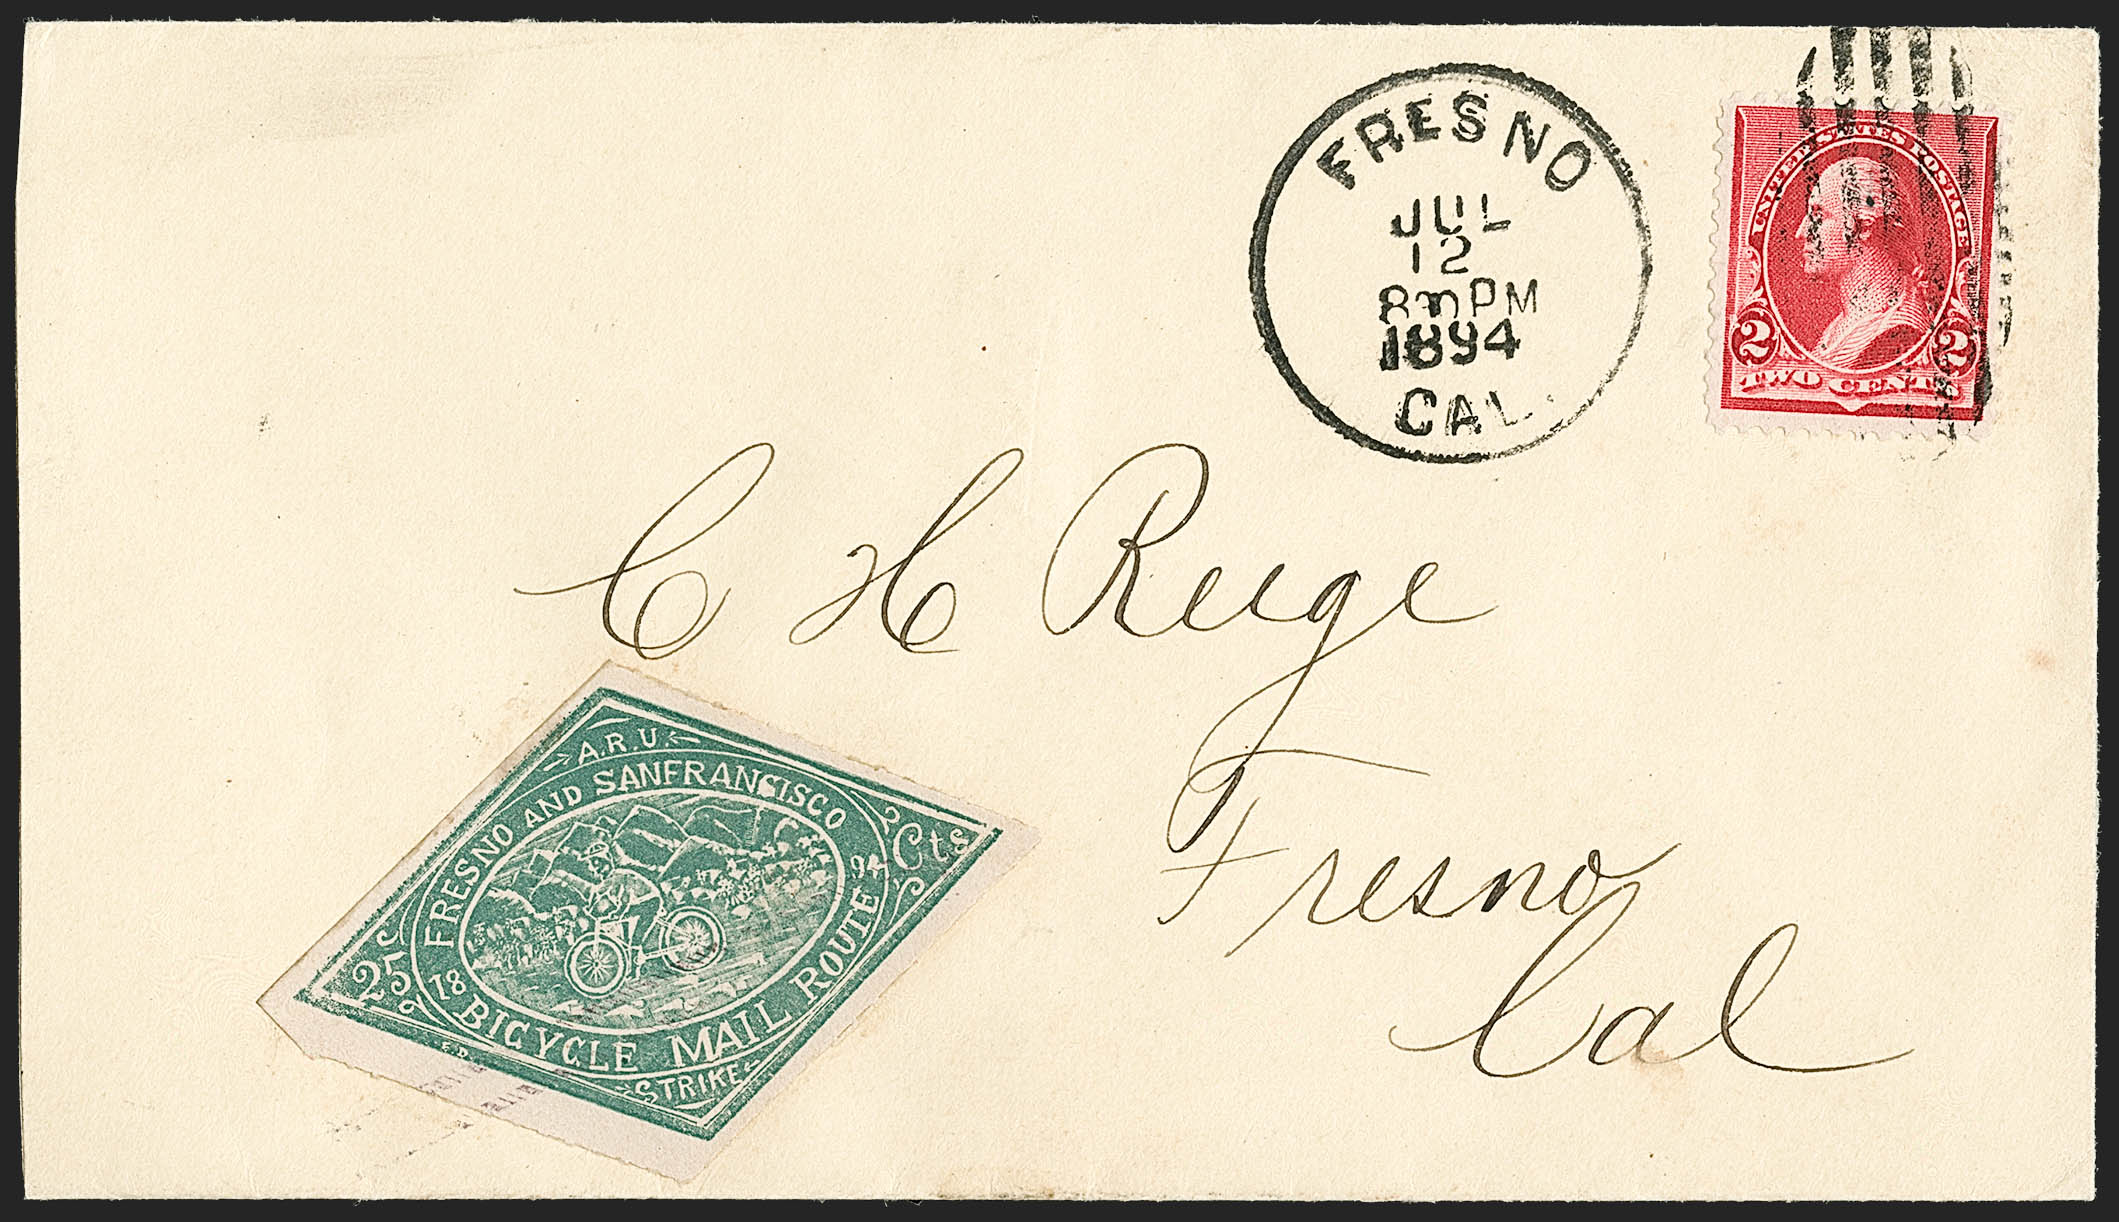 FRESNO
JUL
12
PM
1894
CAL.
UNITED STATES POSTAGE
2 2
TWO CENTS
C H Ruge
Fresno
Cal
A.R.U.
FRESNO AND SANFRANCISCO
25 Cts
18 94
BICYCLE MAIL ROUTE
STRIKE